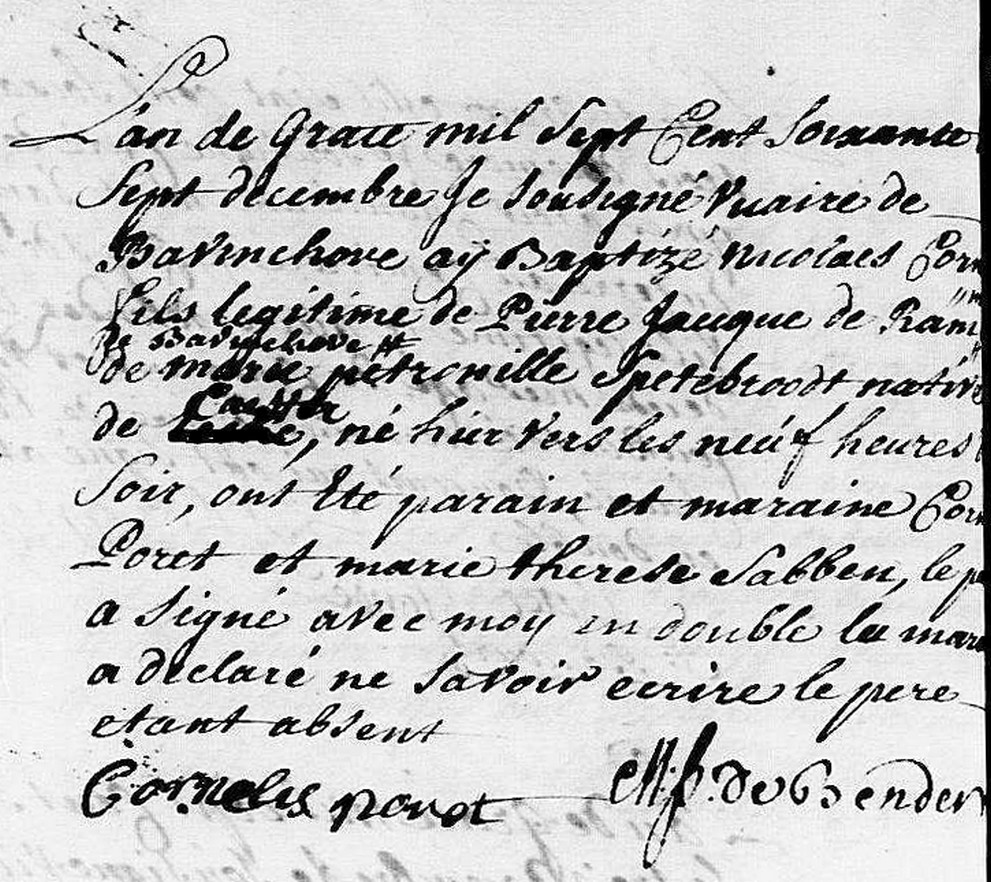 L'an de Grace mil Sept Cent Soixante
Sept decembre Je Sousigné vicaire de
Bavinchove aÿ Baptizé Nicolaes Corn
fils legitime de Pierre Jacque de Ram
de Bavinchove et
de marie petronille Spetebroodt native
Cassel
de né hier vers les neuf heures
Soir, ont Eté parain et maraine Corn
Poret et marie therese Sabben, le pa
a Signé avec moy en double la mara
a declaré ne Savoir ecrire le pere
etant absent
Cornelis poret M: f. de Bender